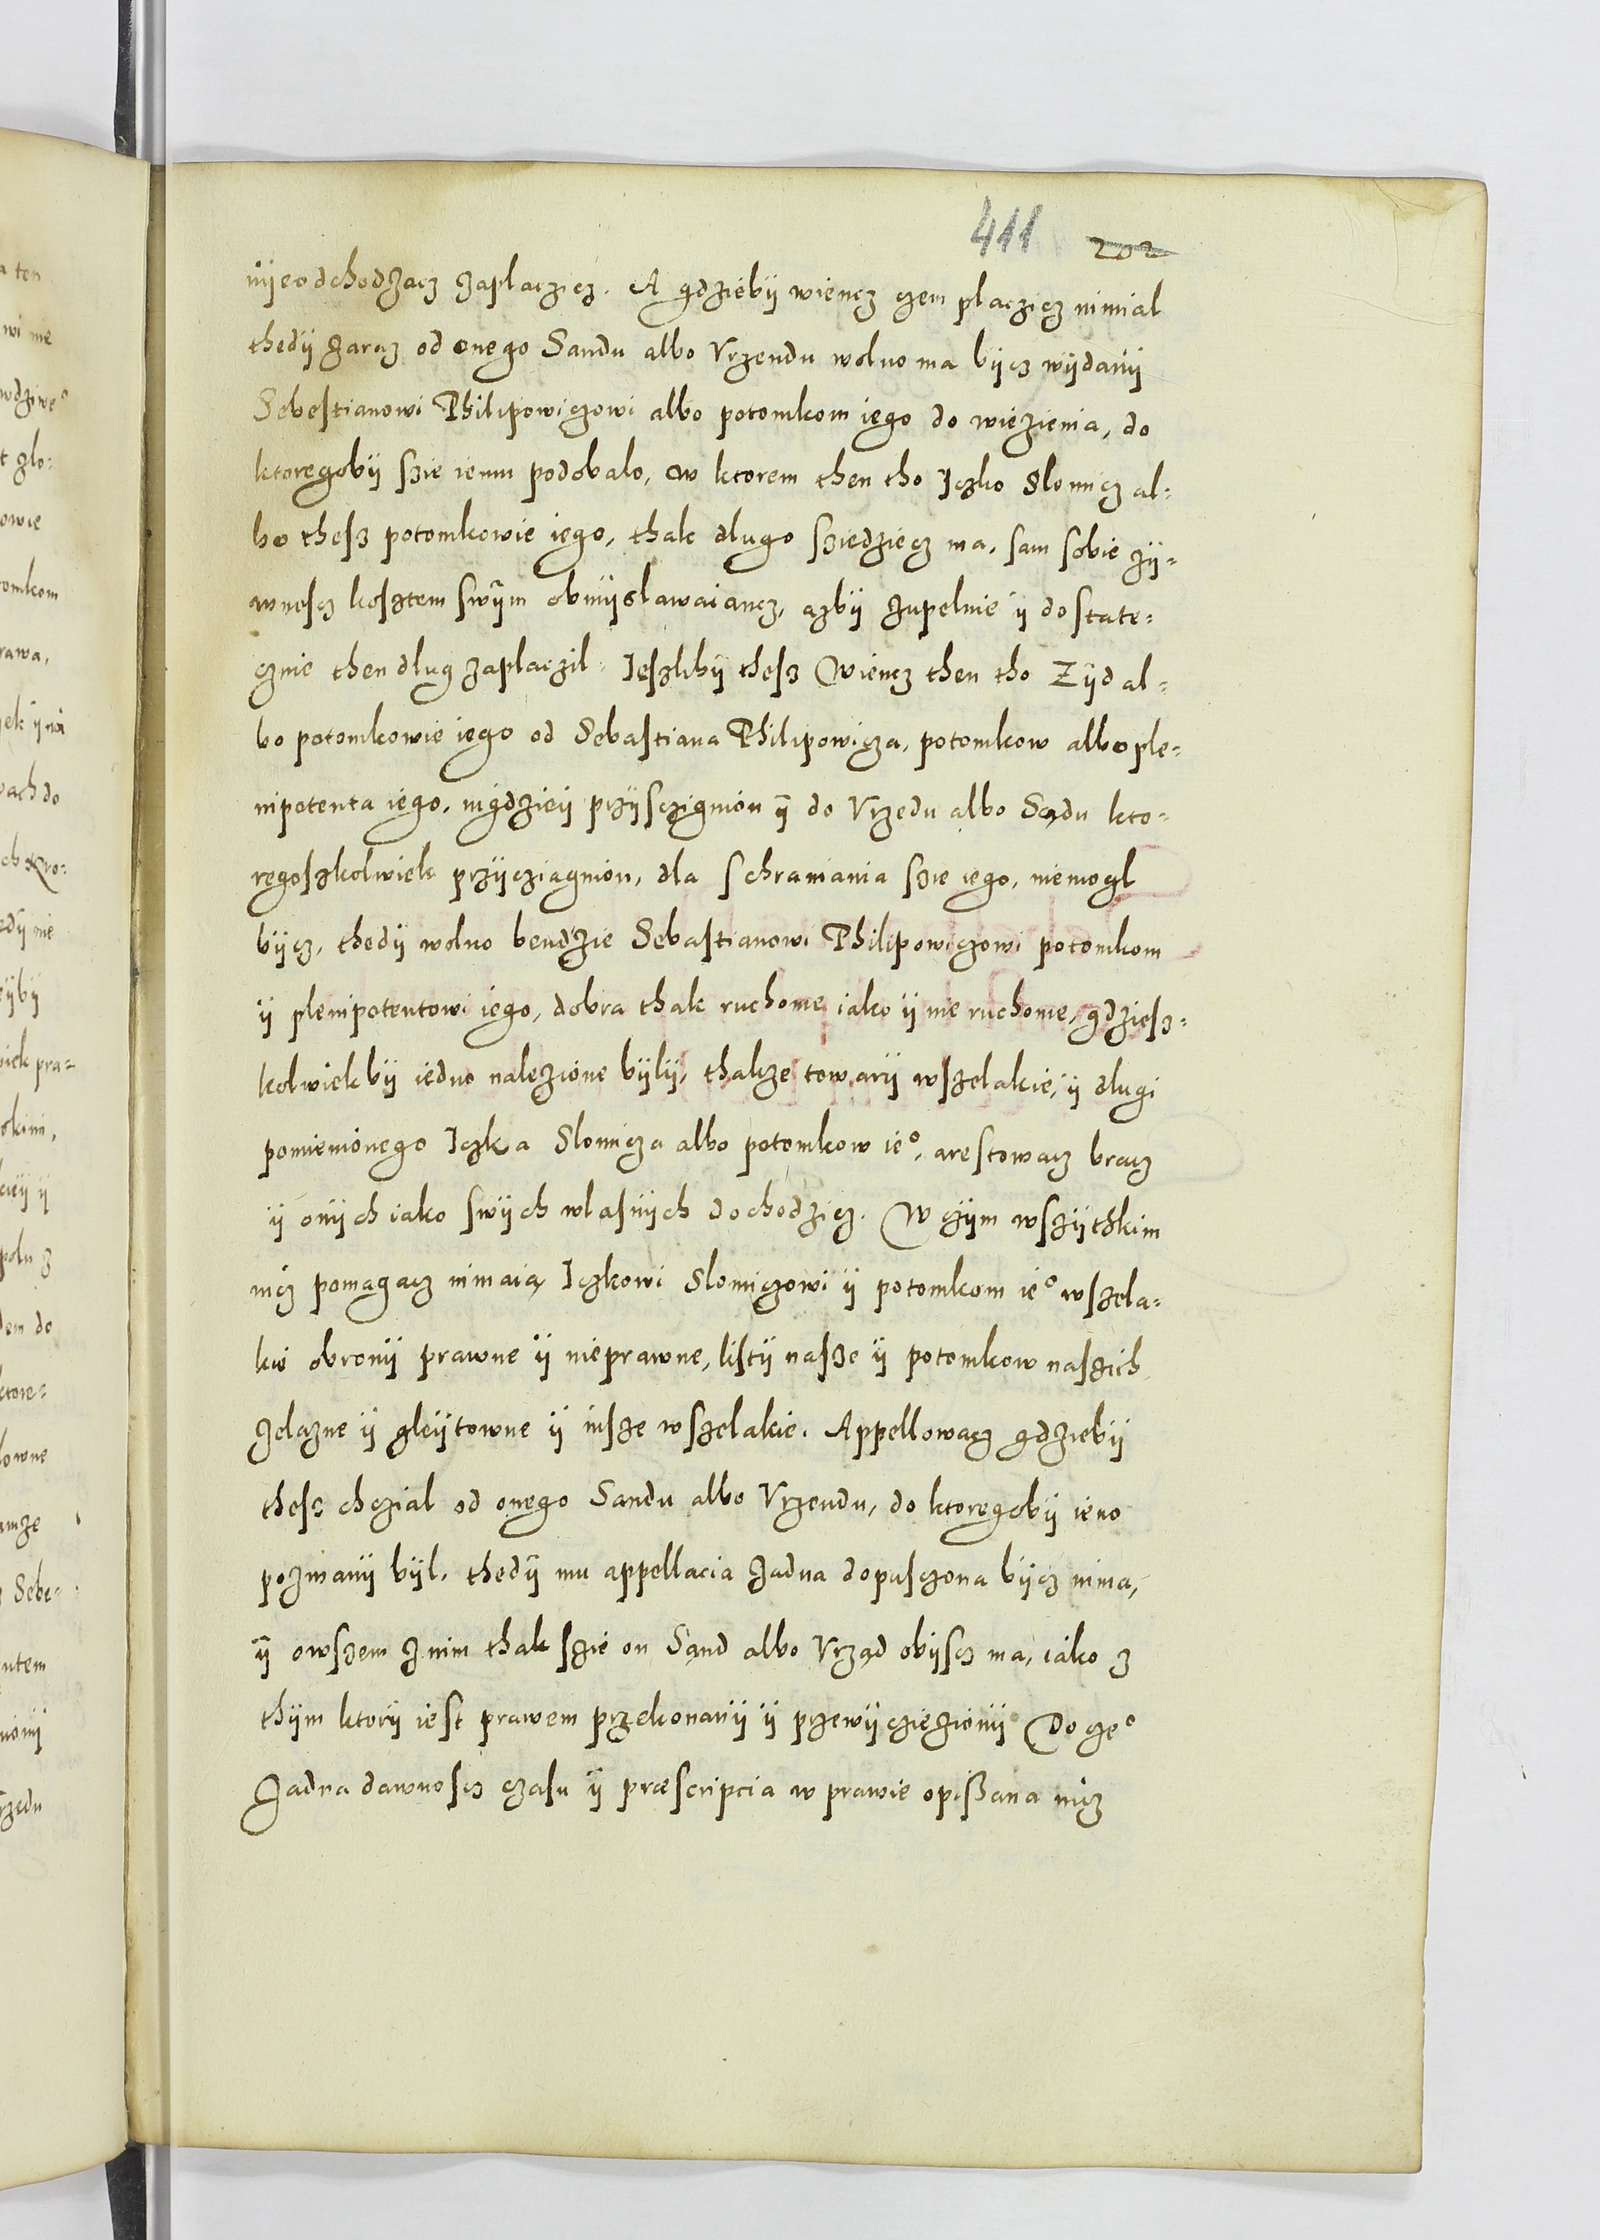 411 202
nÿeodchodzacz zaplaczicz. A gdziebÿ wiencz czem placzicz nimial
thedÿ zaraz od onego Sandu albo Vrzendu wolno ma bÿcz wÿdanÿ
Sebestianowi Philipowiczowi albo potomkom iego do wiezienia, do
ktoregobÿ szie iemu podobalo, w ktorem then tho Iczko Slomicz al=
bo thesz potomkowie iego, thak dlugo sziedziecz ma, sam sobie zÿ=
wnoscz kosztem swÿm obmÿslawaiancz, azbÿ zupelnie ÿ dostate=
cznie then dlug zaplaczil. Ieszlibÿ thesz wiencz then tho Zÿd al=
bo potomkowie iego od Sebastiana Philipowicza, potomkow albo ple=
nipotenta iego, nigdzieÿ przÿsczignion ÿ do Vrzedu albo Sądu kto=
regoszkolwiek przÿcziagnion, dla schraniania szie iego, niemogl
bÿcz, thedÿ wolno bendzie Sebastianowi Philipowiczowi potomkom
ÿ plenipotentowi iego, dobra thak ruchome iako ÿ nie ruchome, gdziesz=
kolwiek bÿ iedno nalezione bÿlÿ, thakze towarÿ wszelakie, ÿ dlugi
pomienionego Iczka Slomicza albo potomkow ie°, arestowacz bracz
ÿ onÿch iako swÿch wlasnÿch dochodzicz. W czÿm wszÿthkim
nicz pomagacz nimaią Iczkowi Slomiczowi ÿ potomkom ie° wszela=
kie obronÿ prawne ÿ nieprawne, listÿ nasze ÿ potomkow naszich
zelazne ÿ gleÿtowne ÿ insze wszelakie. Appellowacz gdziebÿ
thesz chczial od onego Sandu albo Vrzendu, do ktoregobÿ ieno
pozwanÿ bÿl, thedÿ mu appellacia zadna dopusczona bÿcz nima,
ÿ owszem z nim thak szie on Sand albo Vrząd obÿscz ma, iako z
thÿm ktorÿ iest prawem przekonanÿ ÿ przewÿcziezionÿ Do cze°
zadna dawnoscz czasu ÿ præscripcia w prawie opiszana nicz